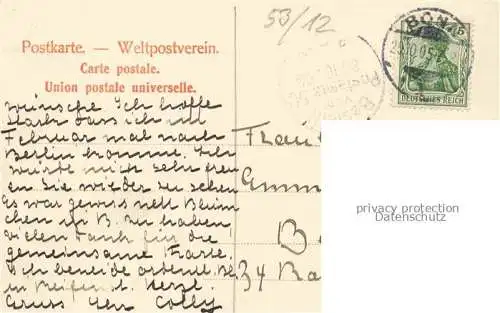 53/12
Postkarte. — Weltpostverein.
Carte postale.
Union postale universelle.
BONN
DEUTSCHES REICH
wünsche Ich hoffe
stark dass ich im
Februar mal nach
Berlin komme. Ich
würde mich sehr freu
en Sie wieder zu sehen
Es war gewiss nett Blüm
chen in B. zu haben
vielen Dank für die
gemeinsame Karte.
Ich beneide
in
Gruss Ihr Colly
Frau
B
34
privacy protection
Datenschutz